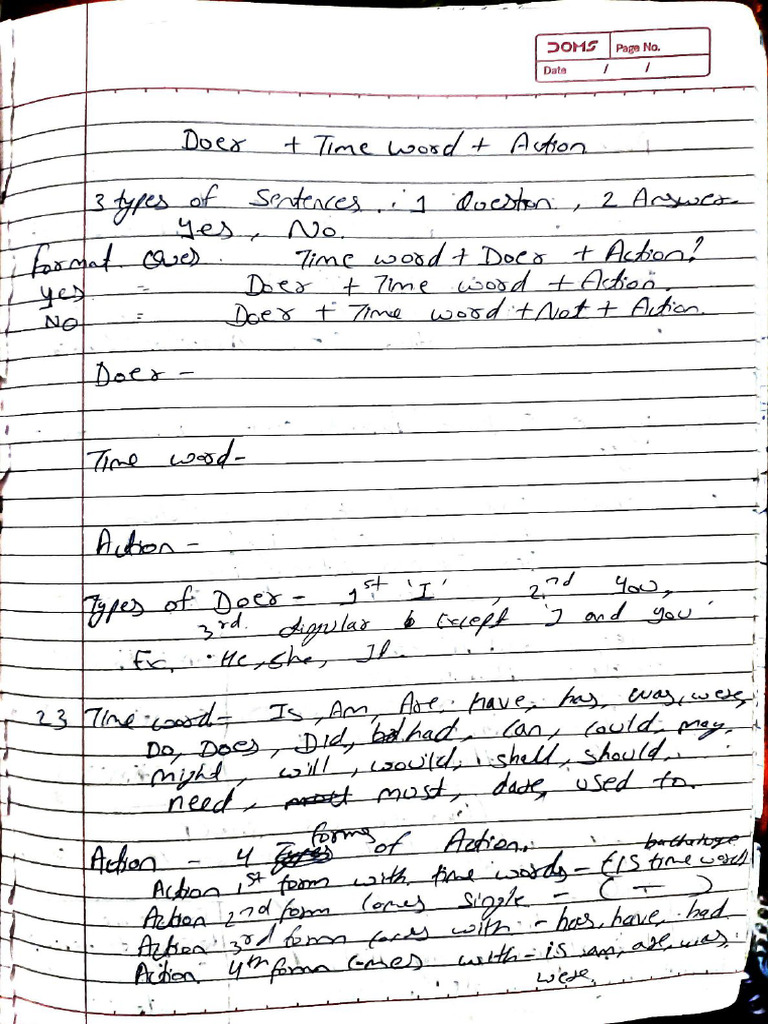 DOMS Page No.
Date / /
Doer + Time word + Action
3 types of Sentences . : 1 Question , 2 Answer
Yes , No.
format Ques. Time word + Doer + Action?
Yes = Doer + Time word + Action.
NO = Doer + Time word + Not + Action.
Doer -
Time word -
Action -
Types of Doer - 1st 'I' , 2nd You,
3rd. Singular Except I and you
Ex. He, She, It.
23 Time word - Is, Am, Are, have, has, was, were,
Do, Does, Did, had, can, could, may,
might, will, would, shall, should,
need, must, dare, used to.
Action - 4 forms of Action.
Action 1st form with time words - (15 time word)
Action 2nd form comes single = ( - )
Action 3rd form comes with - has, have, had
Action 4th form comes with - is am, are, was,
were.